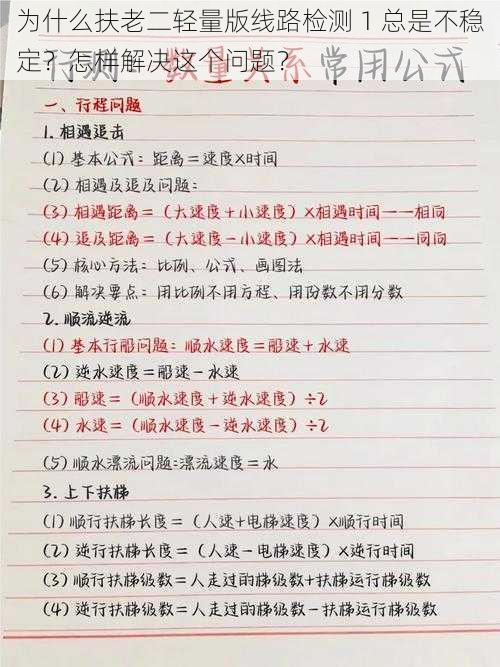 为什么扶老二轻量版线路检测 1 总是不稳
定？怎样解决这个问题？
行测：数量关系常用公式
一、行程问题
1. 相遇追击
(1) 基本公式：距离＝速度×时间
(2) 相遇及追及问题：
(3) 相遇距离＝（大速度＋小速度）×相遇时间——相向
(4) 追及距离＝（大速度－小速度）×相遇时间——同向
(5) 核心方法：比例、公式、画图法
(6) 解决要点：用比例不用方程、用份数不用分数
2. 顺流逆流
(1) 基本行船问题：顺水速度＝船速＋水速
(2) 逆水速度＝船速－水速
(3) 船速＝（顺水速度＋逆水速度）÷2
(4) 水速＝（顺水速度－逆水速度）÷2
(5) 顺水漂流问题：漂流速度＝水
3. 上下扶梯
(1) 顺行扶梯长度＝（人速+电梯速度）×顺行时间
(2) 逆行扶梯长度＝（人速－电梯速度）×逆行时间
(3) 顺行扶梯级数＝人走过的梯级数+扶梯运行梯级数
(4) 逆行扶梯级数＝人走过的梯级数－扶梯运行梯级数